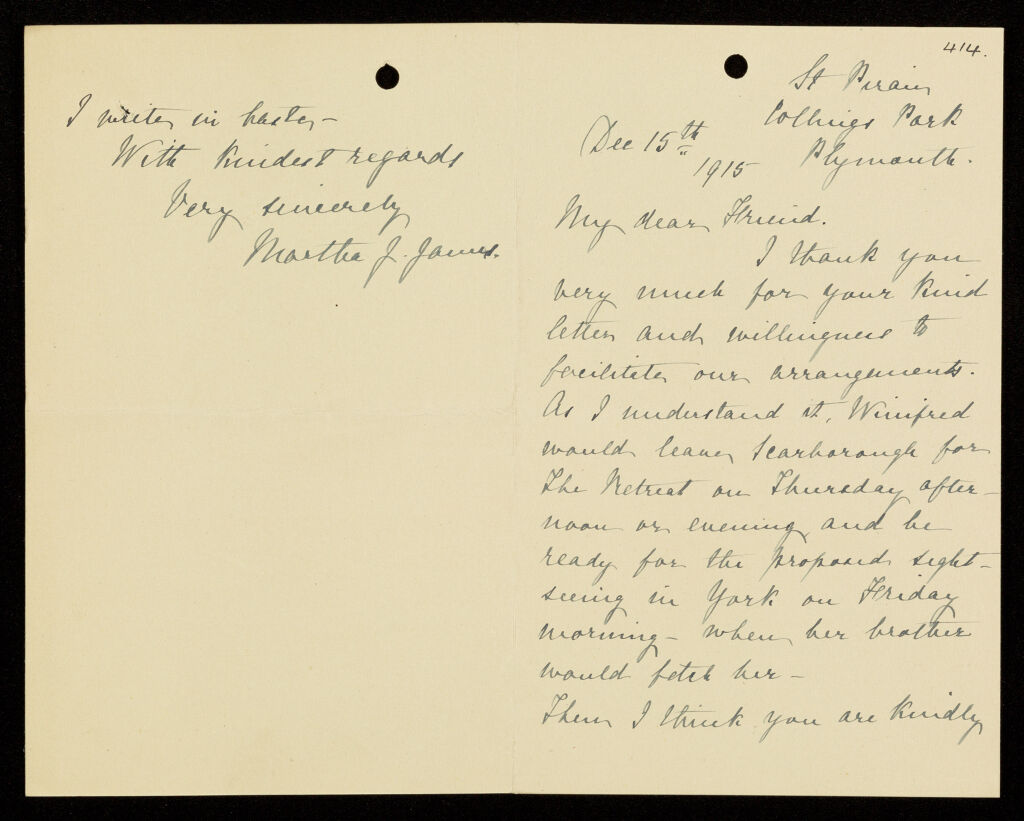 414.
St Piran
Collings Park
Plymouth.
Dec 15th
1915
My dear Friend.
I thank you
very much for your kind
letter and willingness to
facilitate our arrangements.
As I understand it, Winifred
would leave Scarborough for
The Retreat on Thursday after-
noon or evening and be
ready for the proposed sight-
seeing in York on Friday
morning - when her brother
would fetch her -
Then I think you are kindly
I write in haste -
With kindest regards
Very sincerely
Martha J. James.